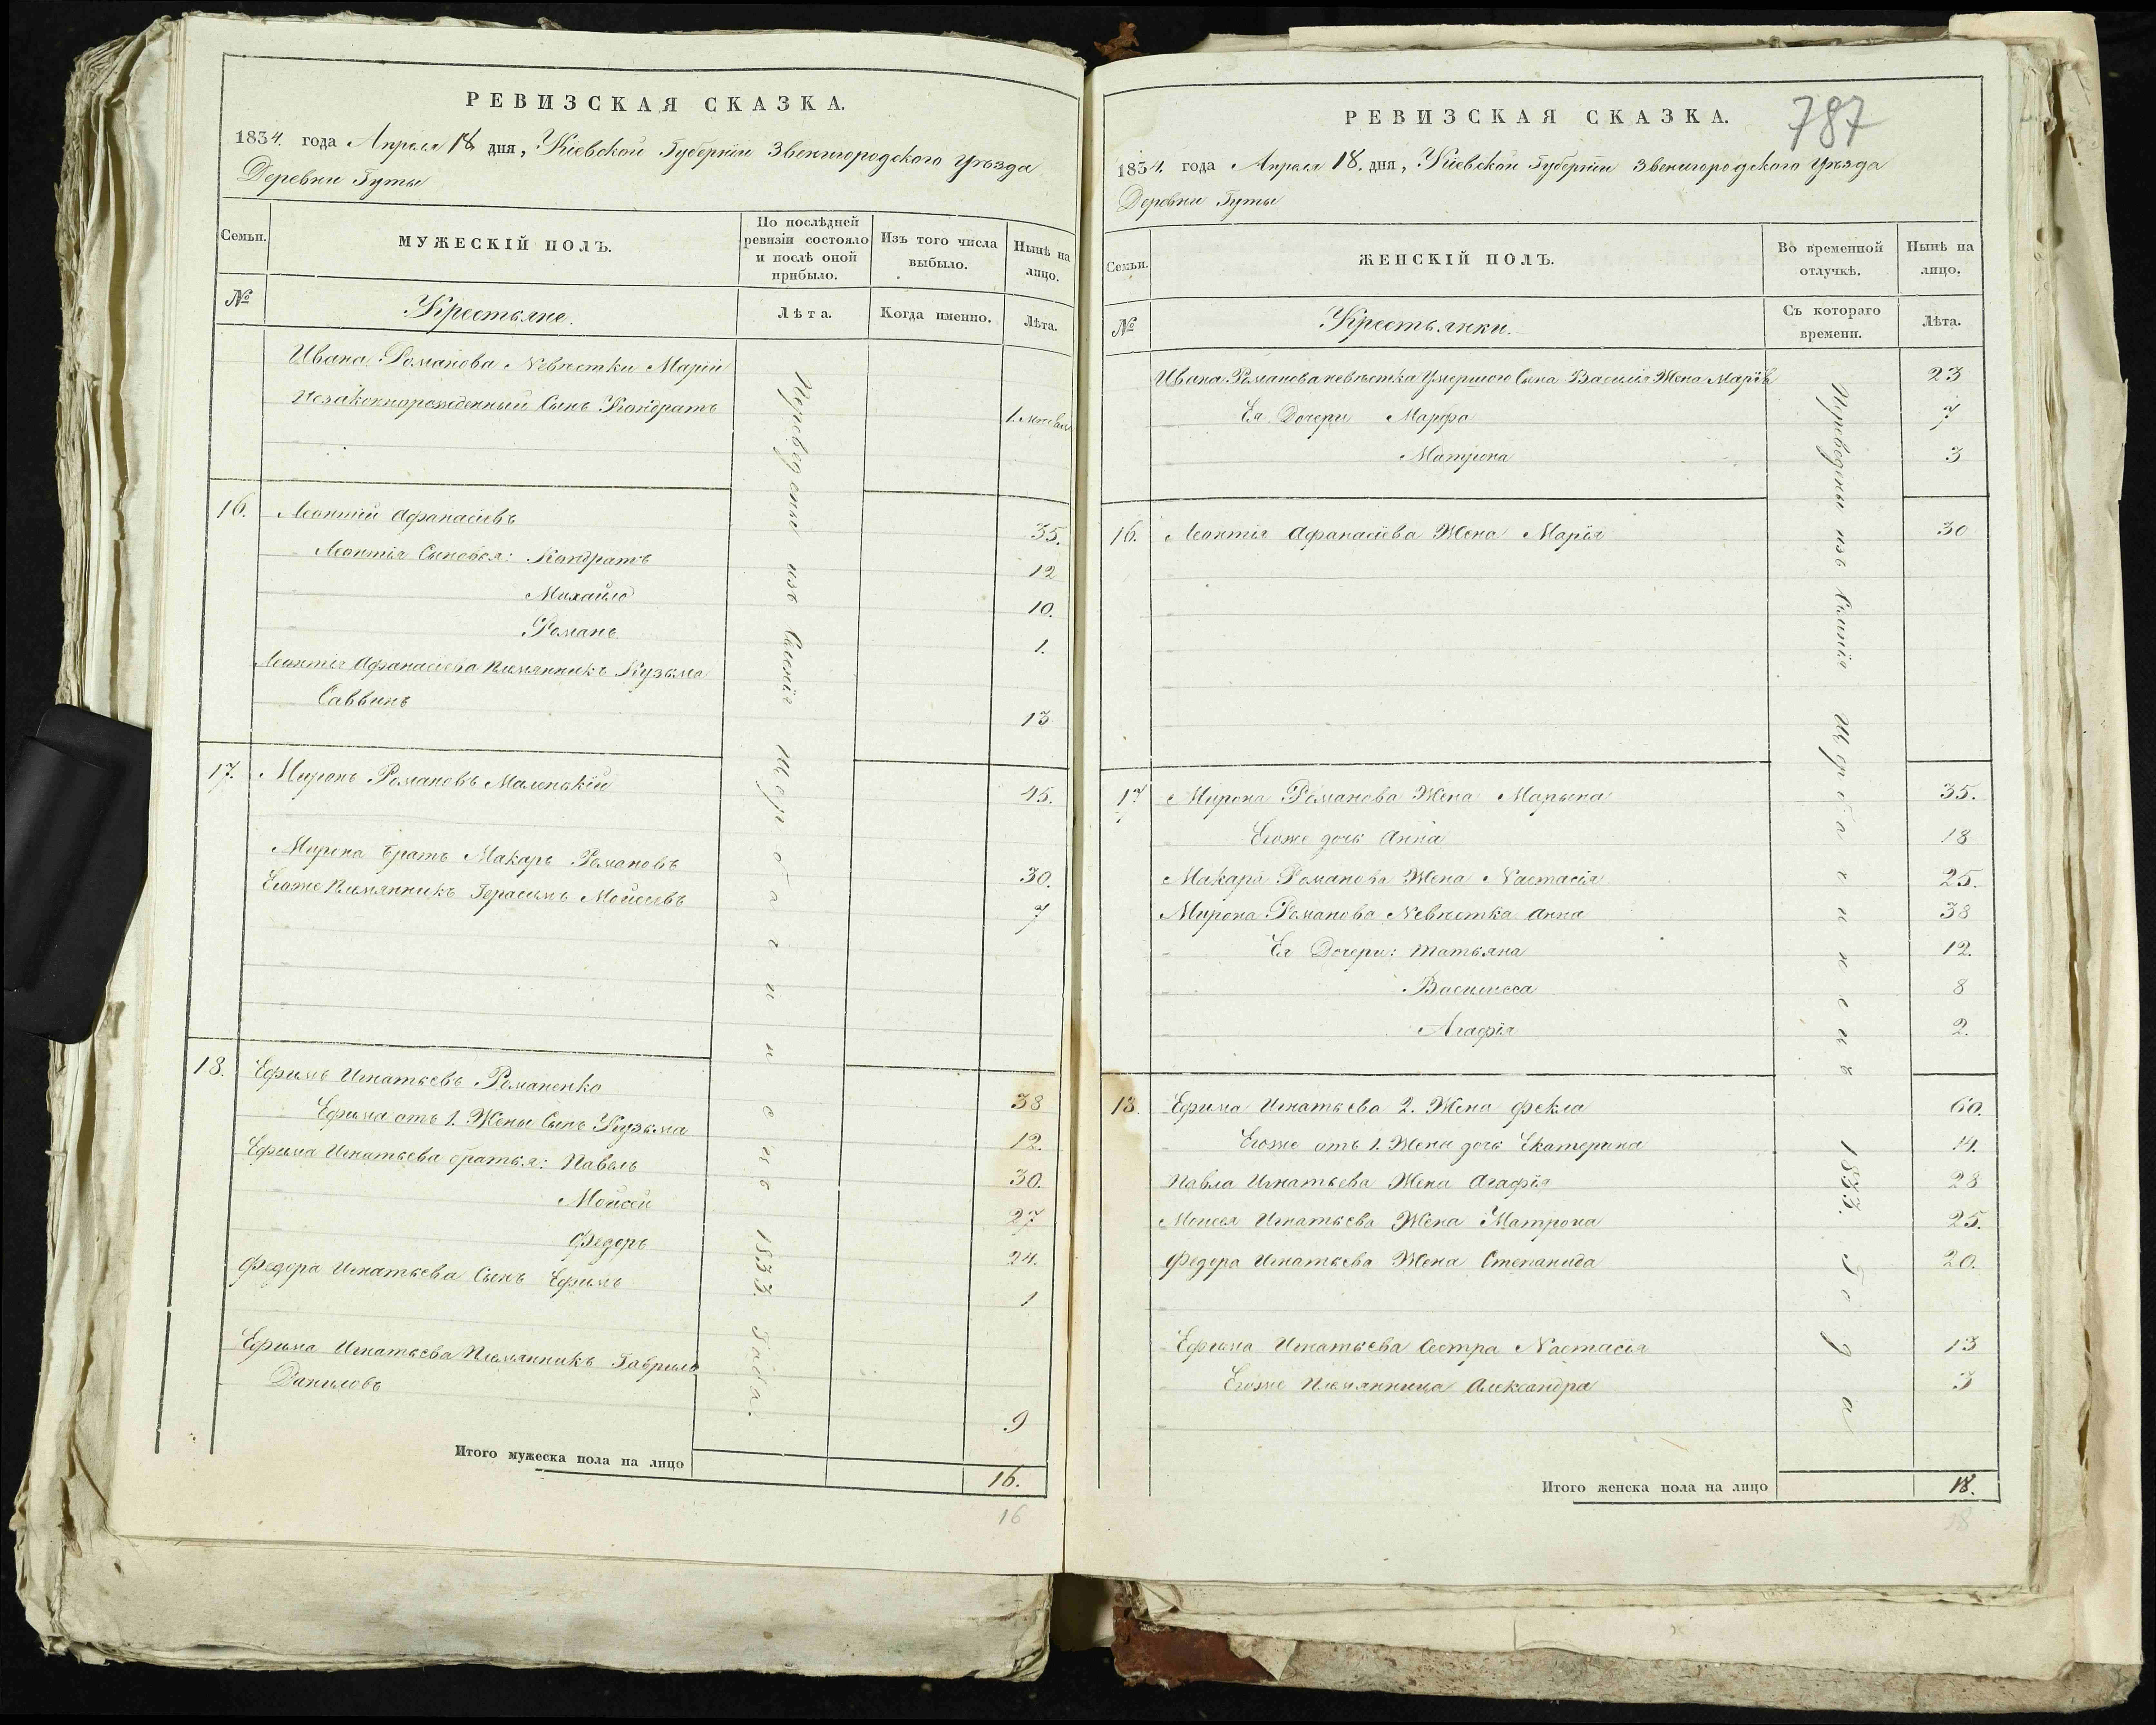 РЕВИЗСКАЯ СКАЗКА.
1834. года Апреля 18 дня, Кіевской Губерніи Звенигородского Уѣзда
Деревни Гуты
Семьи.
МУЖЕСКІЙ ПОЛЪ.
По послѣдней ревизіи состояло и послѣ оной прибыло.
Изъ того числа выбыло.
Нынѣ на лицо.
№
Крестьяне.
Лѣта.
Когда именно.
Лѣта.
Ивана Романова Невѣстки Маріи
Незаконнорожденный Сынъ Кондратъ 1.
16. Леонтій Афанасіевъ 35.
Леонтія Сыновья: Кондратъ 12
Михайло 10.
Романъ 1.
Леонтія Афанасіева Племянникъ Кузьма
Саввинъ 13
17. Миронъ Романовъ Маленькій 45.
Мирона братъ Макаръ Романовъ 30.
Егоже Племянникъ Герасимъ Моисеевъ 7
18. Ефимъ Игнатьевъ Романенко 38
Ефима отъ 1. Жены Сынъ Кузьма 12.
Ефима Игнатьева братья: Павелъ 30.
Моисей 27
Федоръ 24.
Федора Игнатьева Сынъ Ефимъ 1
Ефима Игнатьева Племянникъ Гаврило
Даниловъ 9
Переведены изъ Селенія 1833. Года.
Итого мужеска пола на лицо 16.
16
787
РЕВИЗСКАЯ СКАЗКА.
1834. года Апреля 18. дня, Кіевской Губерніи Звенигородского Уѣзда
Деревни Гуты
Семьи.
ЖЕНСКІЙ ПОЛЪ.
Во временной отлучкѣ.
Нынѣ на лицо.
№
Крестьянки.
Съ котораго времени.
Лѣта.
Ивана Романова невѣстка Умершого Сына Василія Жена Марія 23
Ея Дочери Марфа 7
Матрона 3
16. Леонтія Афанасіева Жена Марія 30
17 Мирона Романова Жена Марына 35.
Егоже дочь Анна 18
Макара Романова Жена Настасія 25.
Мирона Романова Невѣстка Анна 38
Ея Дочери: Татьяна 12.
Василисса 8
Агафія 2.
18. Ефима Игнатьева 2. Жена Фекла 60.
Егоже отъ 1. Жены дочь Екатерина 14.
Павла Игнатьева Жена Агафія 28
Моисея Игнатьева Жена Матрона 25.
Федора Игнатьева Жена Степанида 20.
Ефима Игнатьева Сестра Настасія 13
Егоже Племянница Александра 3
Переведены изъ Селенія 1833. Года
Итого женска пола на лицо 18.
18